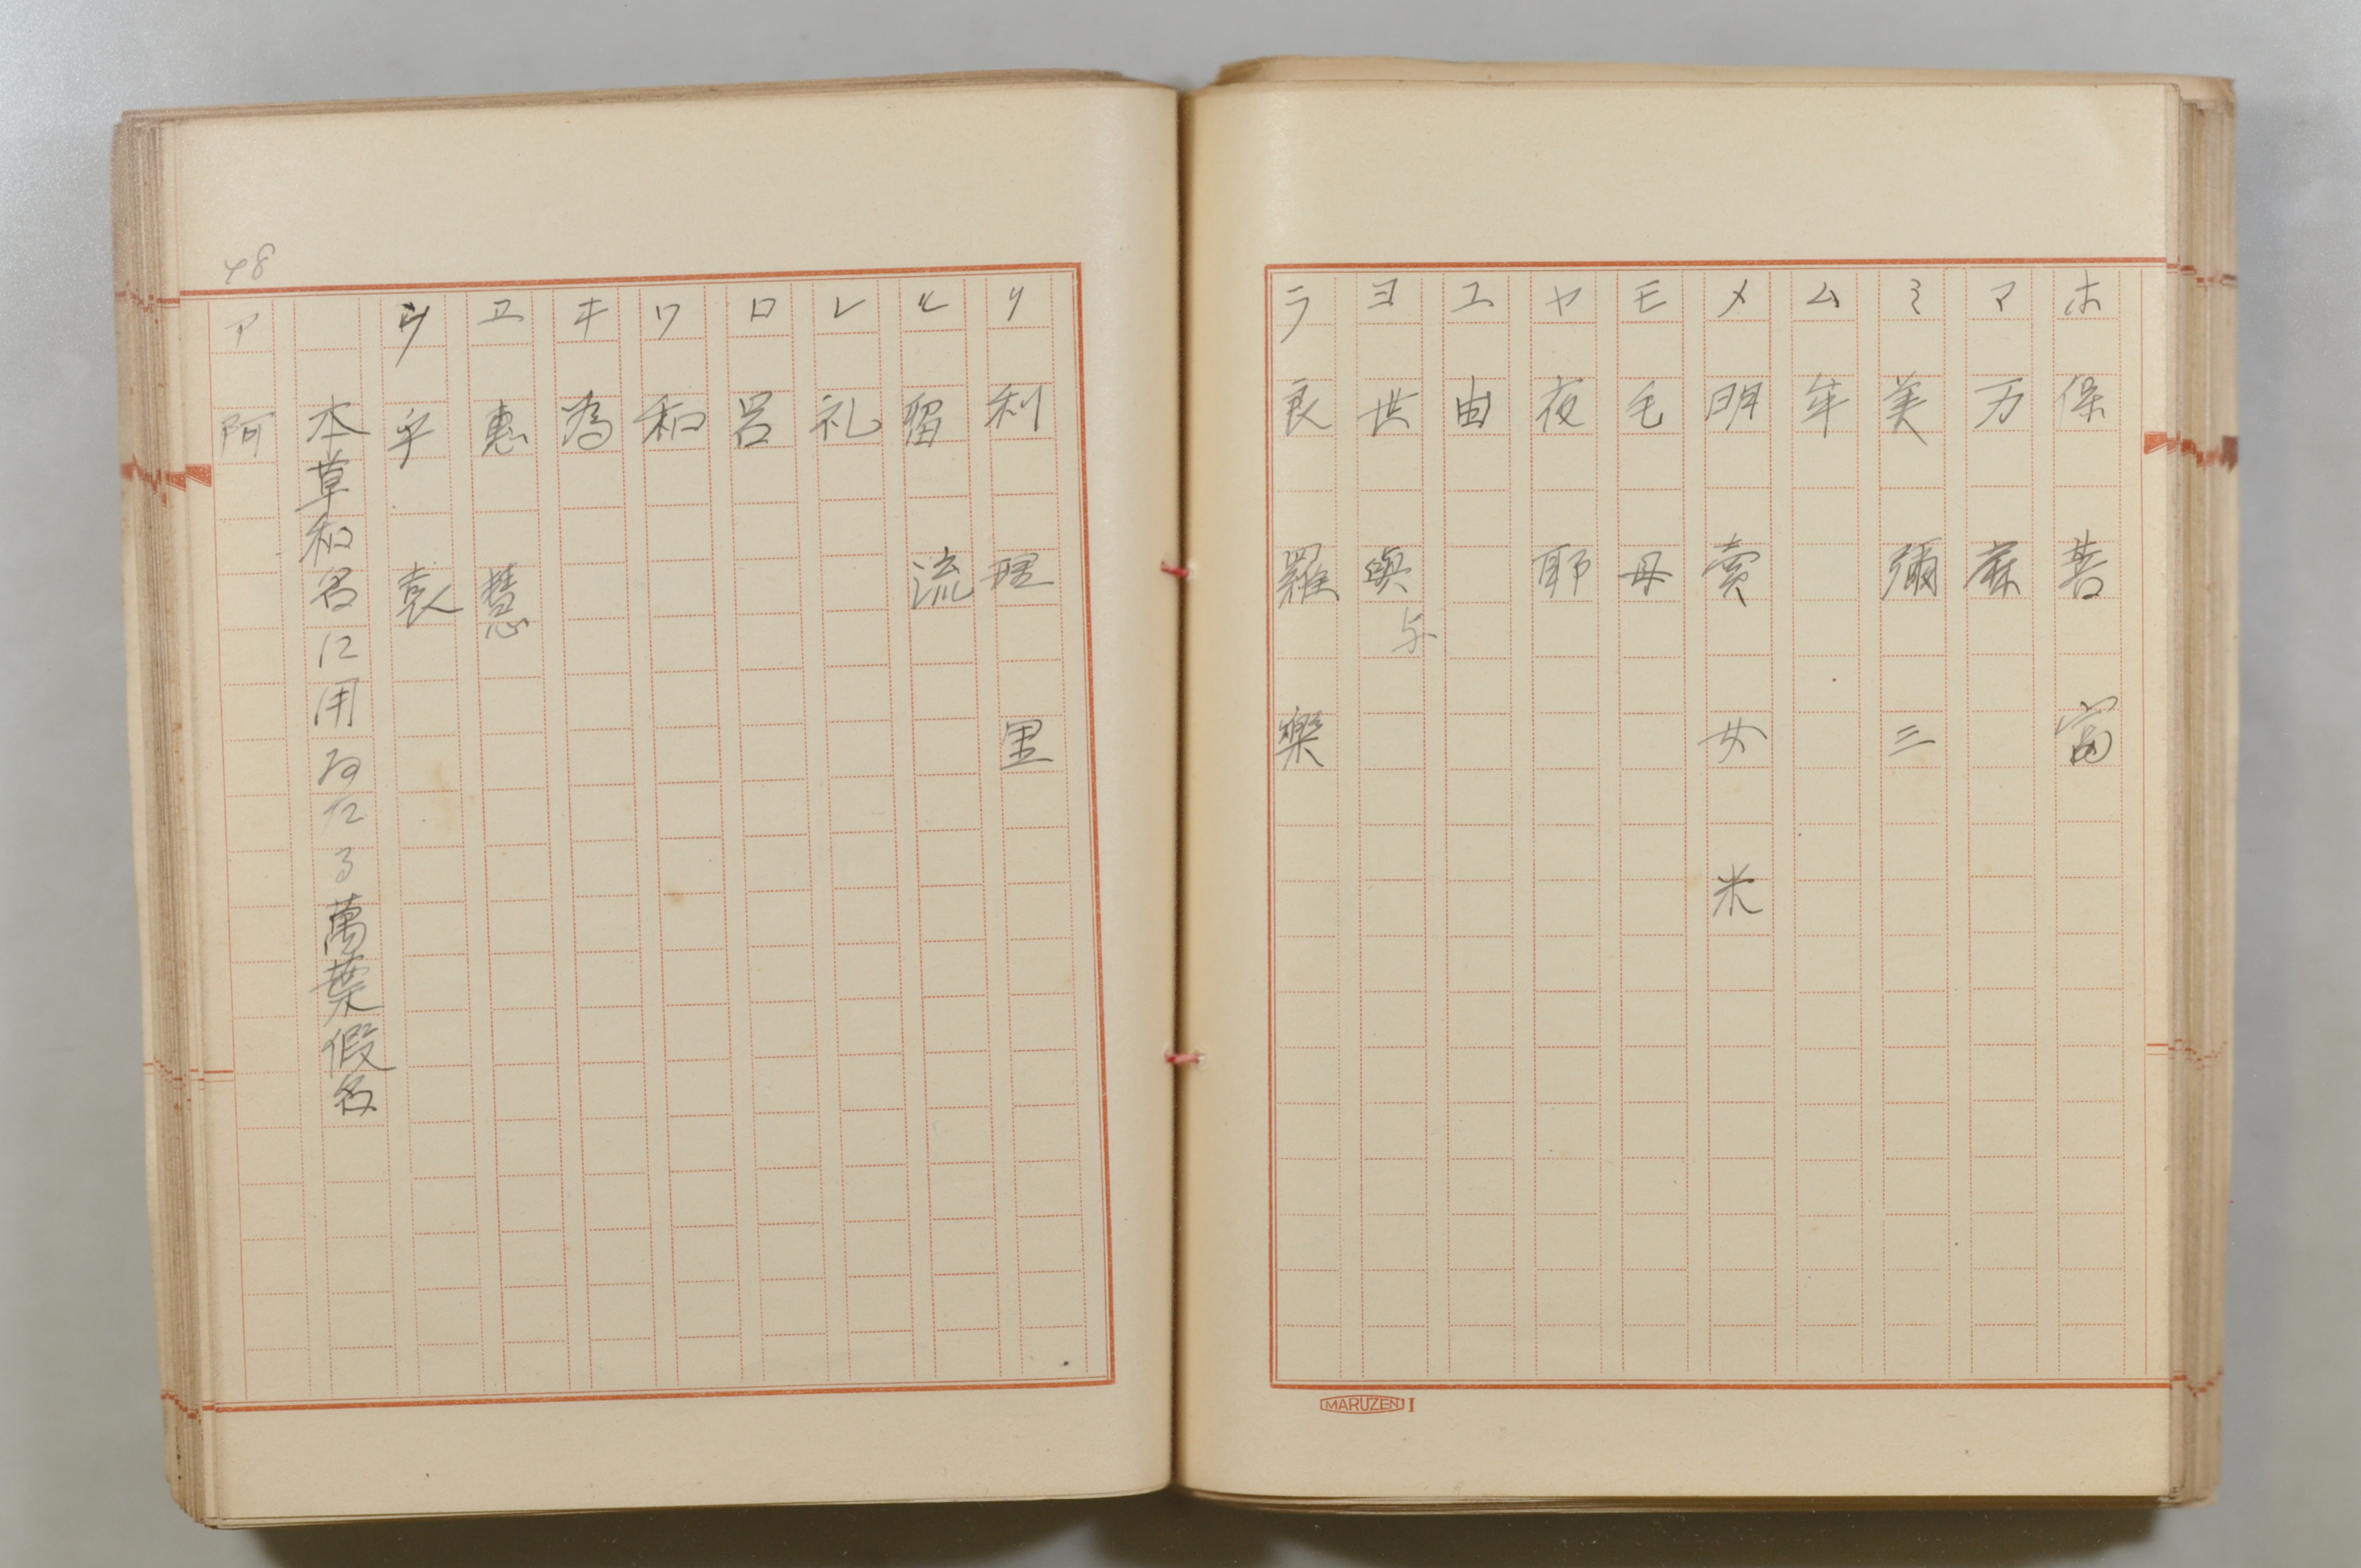 ホ 保 菩 富
マ 万 麻
ミ 美 彌 三
ム 牟
メ 明 賣 女 米
モ 毛 母
ヤ 夜 耶
ユ 由
ヨ 世 與 与
ラ 良 羅 樂
MARUZEN I
リ 利 理 里
ル 留 流
レ 礼
ロ 呂
ワ 和
ヰ 為
ヱ 惠 慧
ヲ 乎 袁
本草和名に用ゐたる萬葉假名
ア 阿
48